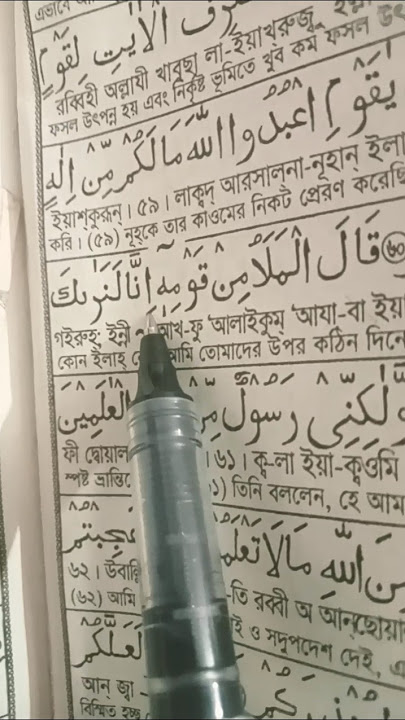 نصرف الايت لقوم
রব্বিহী অল্লাযী খাবুছা লা-ইয়াখ্‌রুজু
ফসল উৎপন্ন হয় এবং নিকৃষ্ট ভূমিতে খুব কম ফসল উৎ
يقوم اعبدوا الله مالكم من اله
ইয়াশ্‌কুরূন্। ৫৯। লাক্বদ্ আরসালনা-নূহান্ ইলা
করি। (৫৯) নূহকে তার কাওমের নিকট প্রেরণ করেছি
۝٦٠ قال الملا من قومه انا لنرىك
গইরুহ্; ইন্নী আখ-ফু 'আলাইকুম্ 'আযা-বা ইয়া
কোন ইলাহ্ আমি তোমাদের উপর কঠিন দিনে
ولكني رسول من العلمين
ফী দ্বোয়ালা ৬১। ক্ব-লা ইয়া-ক্বওমি
স্পষ্ট ভ্রান্তিতে ১) তিনি বললেন, হে আমা
من الله ما لا تعلمو عجبتم
৬২। উবাল্লি -তি রব্বী অ আন্‌ছোয়া
(৬২) আমি ই ও সদুপদেশ দেই, এ
لعلكم
আন্ জ্বা
বিস্মিত হচ্ছ